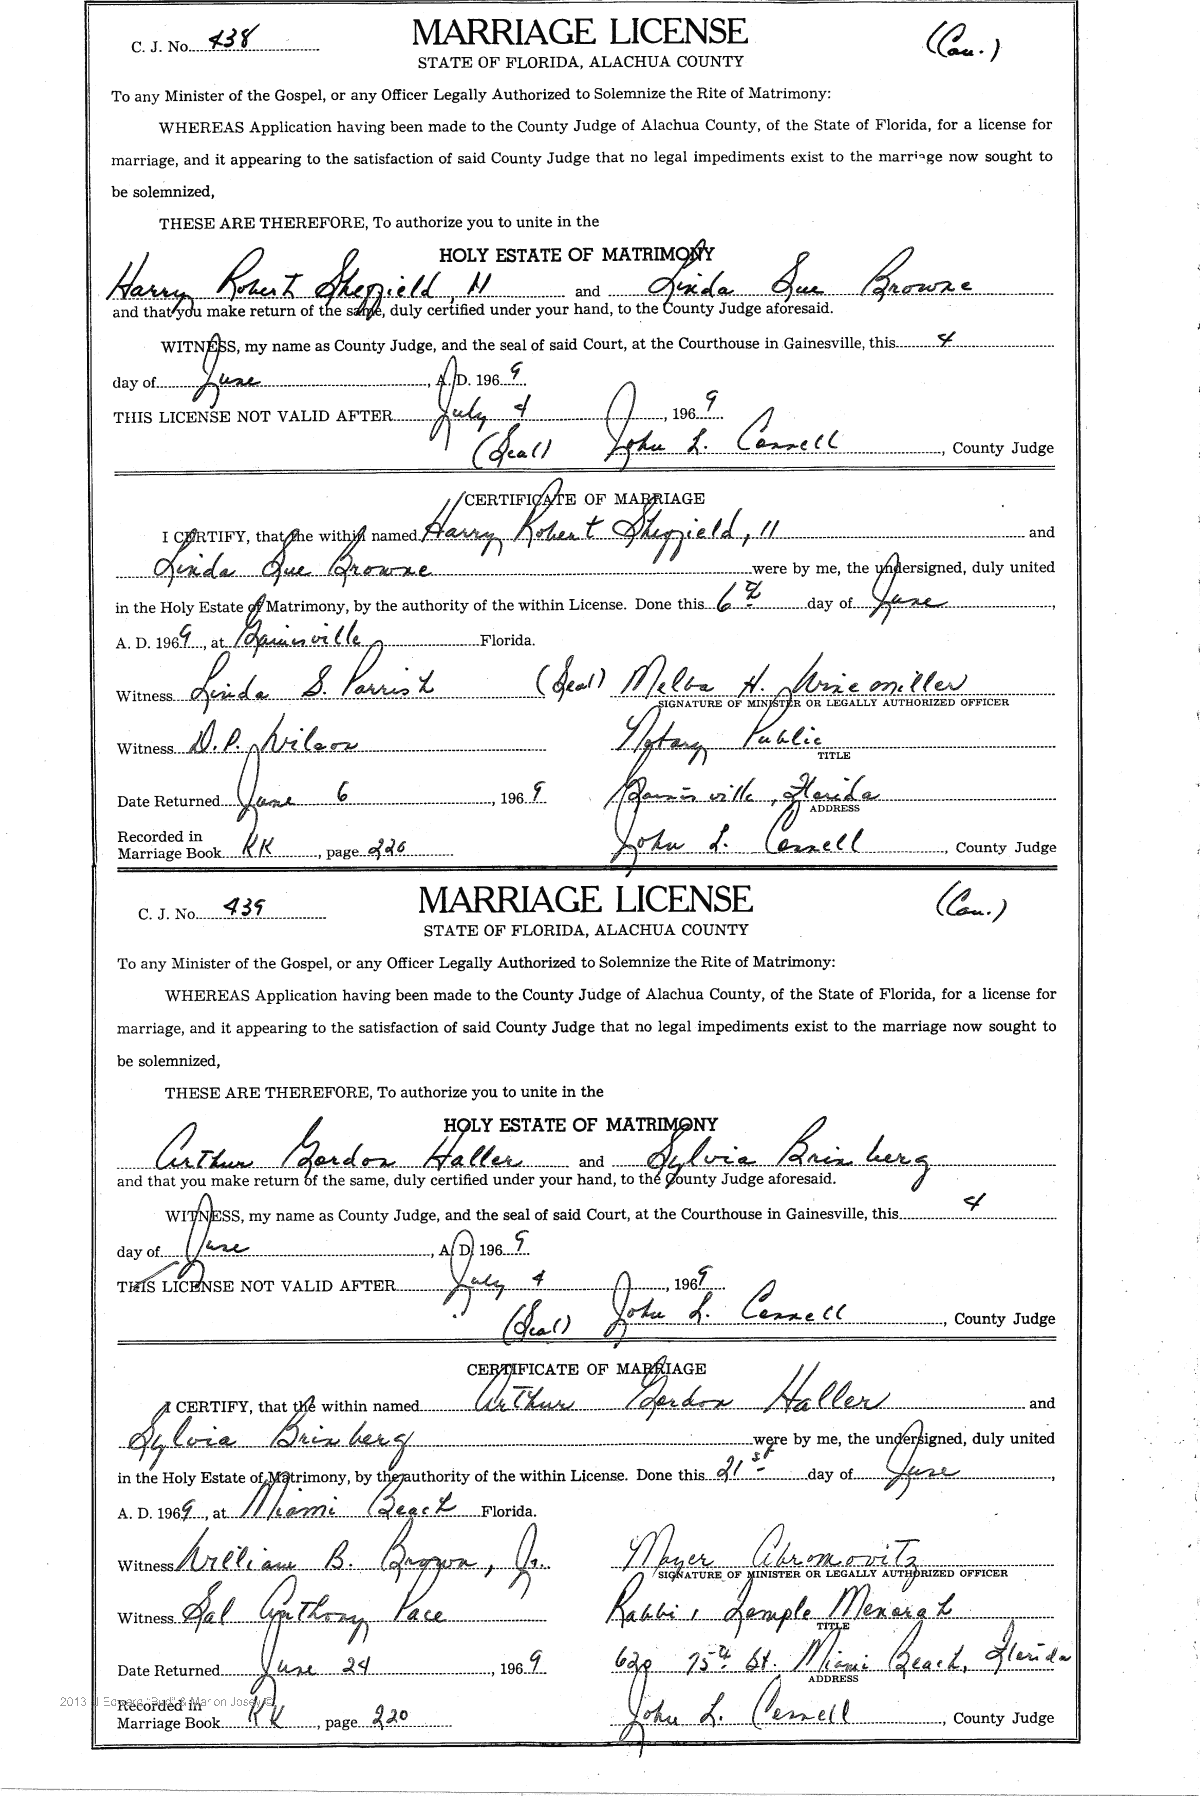 C. J. No. 438 MARRIAGE LICENSE (Cau.)
STATE OF FLORIDA, ALACHUA COUNTY
To any Minister of the Gospel, or any Officer Legally Authorized to Solemnize the Rite of Matrimony:
WHEREAS Application having been made to the County Judge of Alachua County, of the State of Florida, for a license for
marriage, and it appearing to the satisfaction of said County Judge that no legal impediments exist to the marriage now sought to
be solemnized,
THESE ARE THEREFORE, To authorize you to unite in the
HOLY ESTATE OF MATRIMONY
Harry Robert Sheffield, II and Linda Sue Browne
and that you make return of the same, duly certified under your hand, to the County Judge aforesaid.
WITNESS, my name as County Judge, and the seal of said Court, at the Courthouse in Gainesville, this 4
day of June, A. D. 1969
THIS LICENSE NOT VALID AFTER July 4, 1969
(Seal) John L. Connell, County Judge
CERTIFICATE OF MARRIAGE
I CERTIFY, that the within named Harry Robert Sheffield, II and
Linda Sue Browne were by me, the undersigned, duly united
in the Holy Estate of Matrimony, by the authority of the within License. Done this 6th day of June,
A. D. 1969, at Gainesville Florida.
Witness Linda S. Parrish (Seal) Melba H. Winemiller
SIGNATURE OF MINISTER OR LEGALLY AUTHORIZED OFFICER
Witness D. P. Wilson Notary Public
TITLE
Date Returned June 6, 1969 Gainesville, Florida
ADDRESS
Recorded in
Marriage Book KK, page 220 John L. Connell, County Judge
C. J. No. 439 MARRIAGE LICENSE (Cau.)
STATE OF FLORIDA, ALACHUA COUNTY
To any Minister of the Gospel, or any Officer Legally Authorized to Solemnize the Rite of Matrimony:
WHEREAS Application having been made to the County Judge of Alachua County, of the State of Florida, for a license for
marriage, and it appearing to the satisfaction of said County Judge that no legal impediments exist to the marriage now sought to
be solemnized,
THESE ARE THEREFORE, To authorize you to unite in the
HOLY ESTATE OF MATRIMONY
Arthur Gordon Haller and Sylvia Brinberg
and that you make return of the same, duly certified under your hand, to the County Judge aforesaid.
WITNESS, my name as County Judge, and the seal of said Court, at the Courthouse in Gainesville, this 4
day of June, A. D. 1969
THIS LICENSE NOT VALID AFTER July 4, 1969
(Seal) John L. Connell, County Judge
CERTIFICATE OF MARRIAGE
I CERTIFY, that the within named Arthur Gordon Haller and
Sylvia Brinberg were by me, the undersigned, duly united
in the Holy Estate of Matrimony, by the authority of the within License. Done this 21st day of June,
A. D. 1969, at Miami Beach Florida.
Witness William B. Brown, Jr. Mayer Abromovitz
SIGNATURE OF MINISTER OR LEGALLY AUTHORIZED OFFICER
Witness Sal Anthony Pace Rabbi, Temple Menorah
TITLE
Date Returned June 24, 1969 620 75th St. Miami Beach, Florida
ADDRESS
Recorded in
Marriage Book KK, page 220 John L. Connell, County Judge